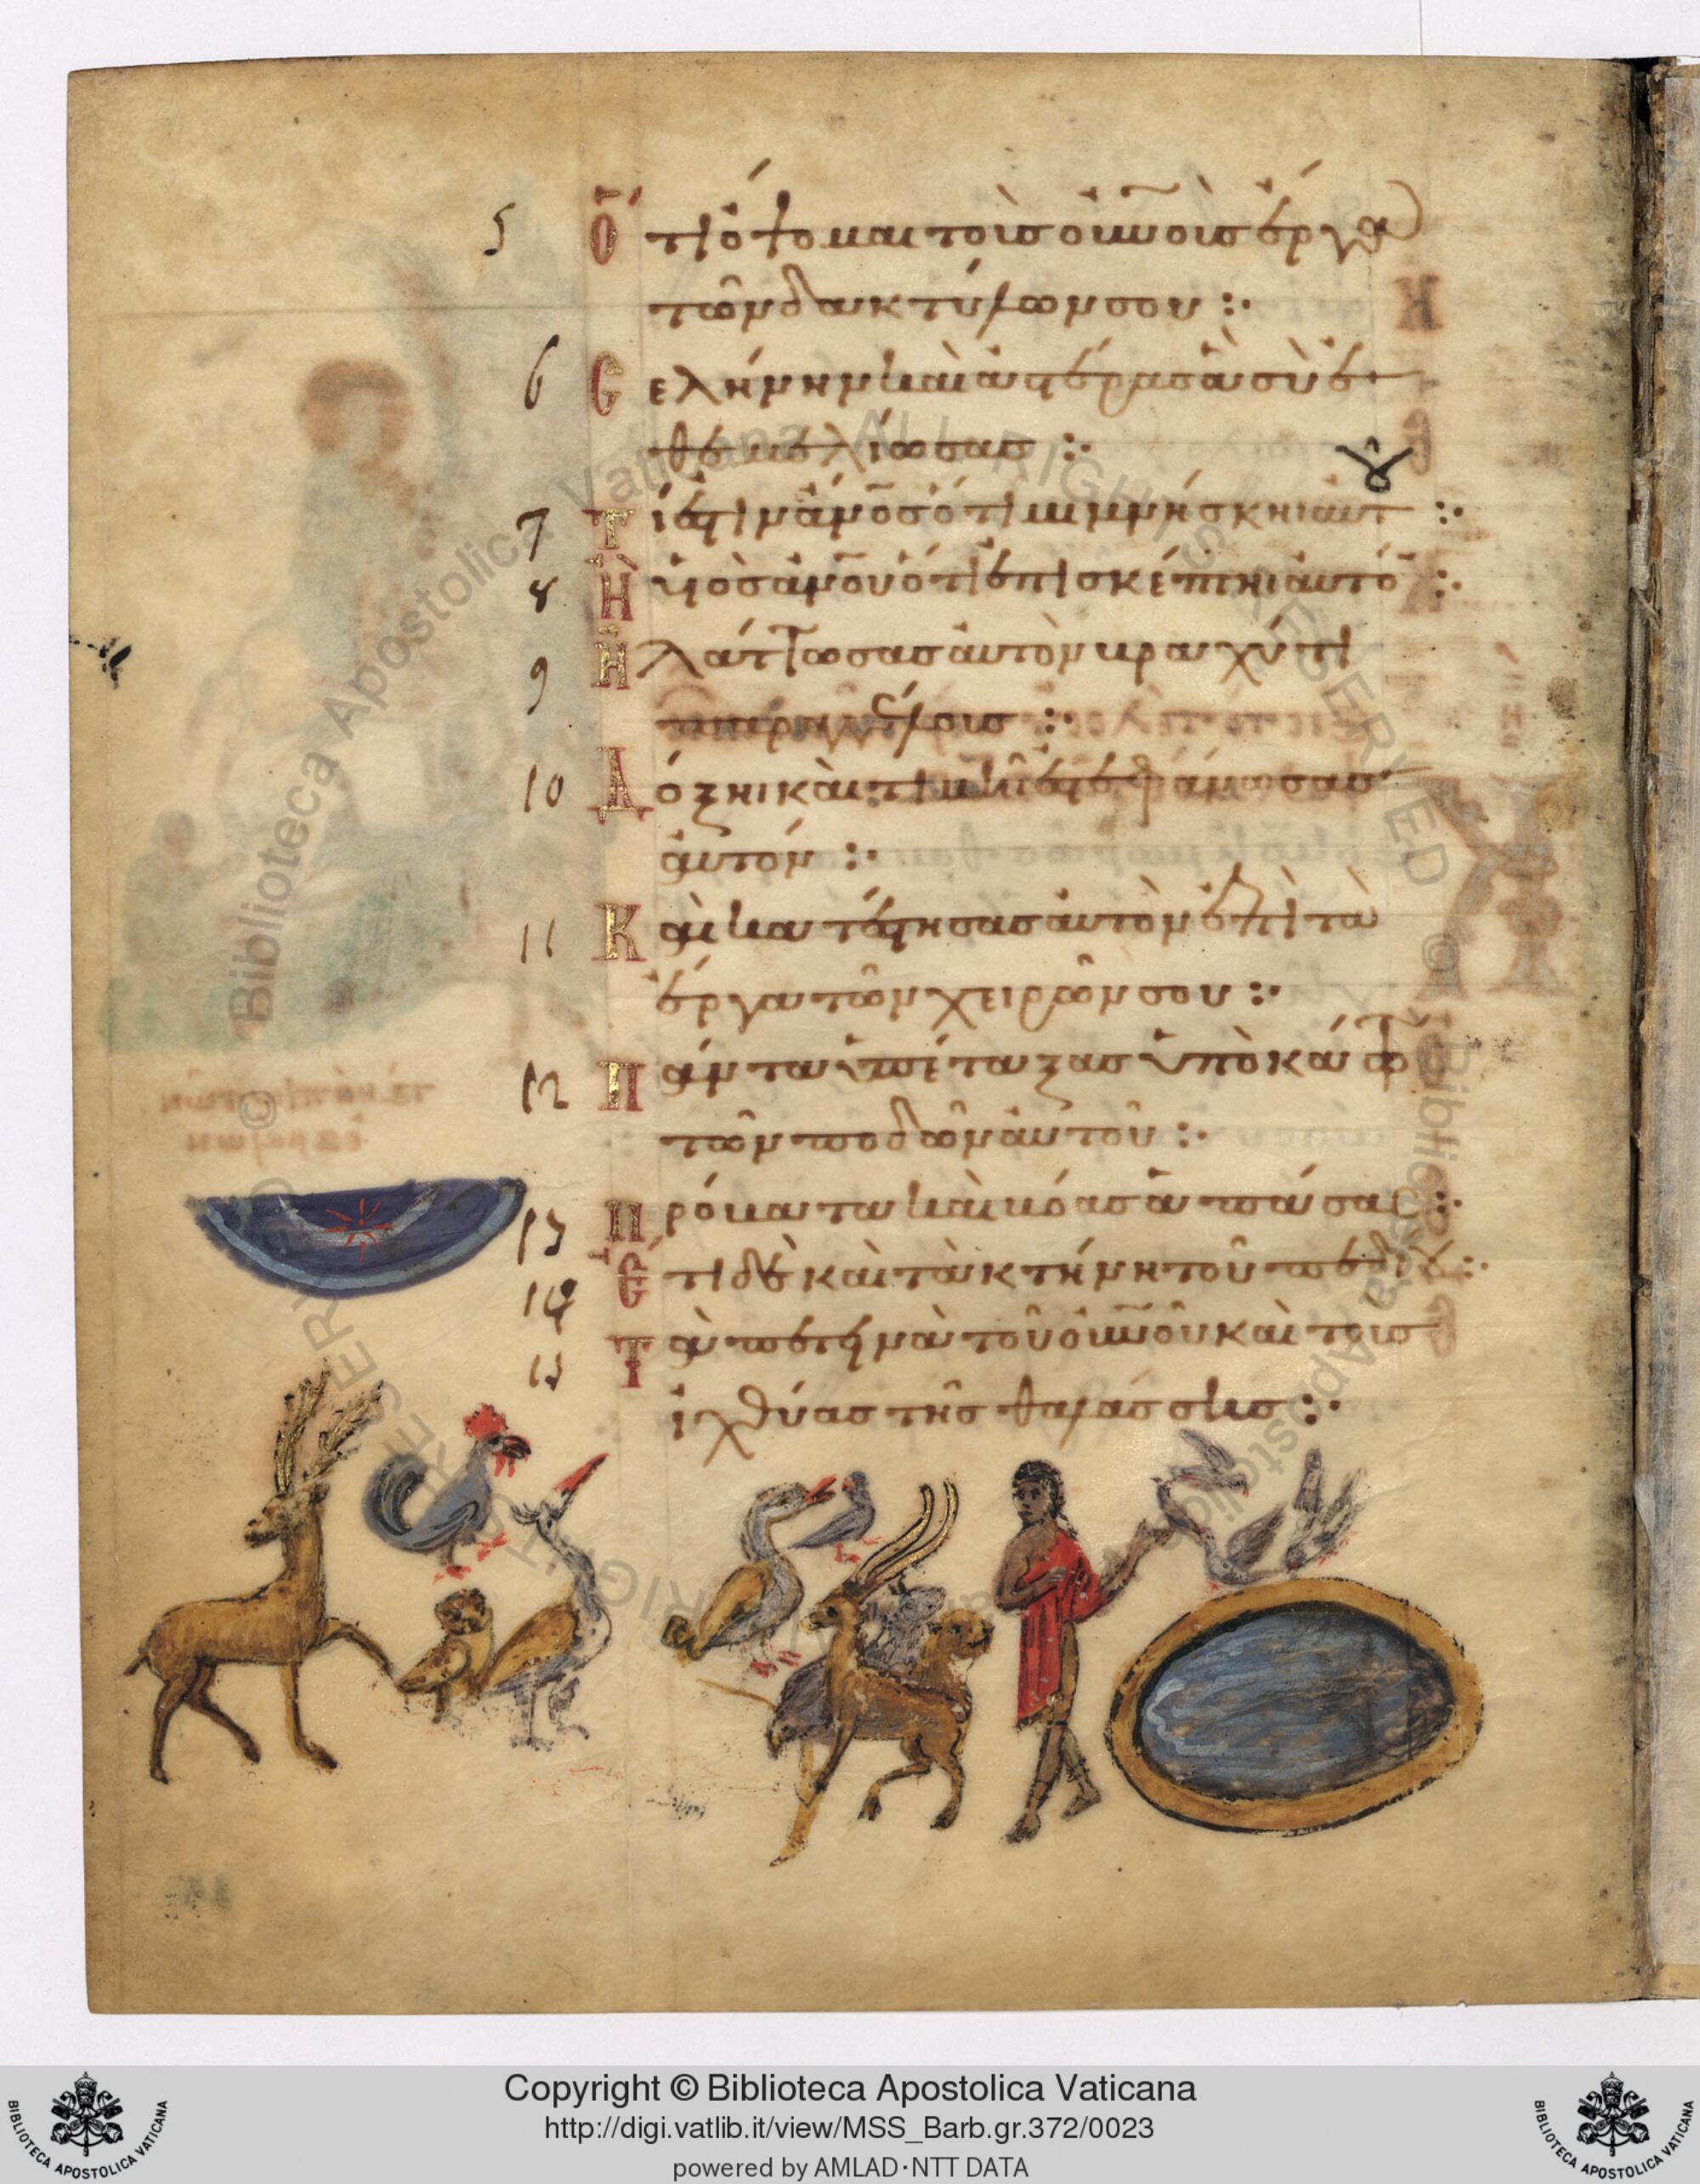 5 Ὅ τι ὄψομαι τοὺσ ου̅νουσ ἔργα
τῶν δακτύλων σου :·
6 Σ ελήνην καὶ ἀστέρασ ἃ σὺ ἐ
θεμελίωσασ :·
7 Τ ί ἐστιν ἄν̅οσ ὅτι μιμνήσκηι αὐτ :·
8 Ἢ υἱὸσ ἀν̅ου ὅτι ἐπισκέπτηι αὐτο :·
9 Ἠ λάττωσασ αὐτὸν βραχύ τι
παρ αγγέλουσ :·
10 Δ όξηι καὶ τιμῆι ἐστεφάνωσασ
αὐτόν :·
11 Κ αὶ κατέστησασ αὐτὸν ἐπὶ τὰ
ἔργα τῶν χειρῶν σου :·
12 Π άντα ὑπέταξασ ὑποκάτω
τῶν ποδῶν αὐτοῦ :·
13 Π ρόβατα καὶ βόασ ἁπάσασ :·
14 Ἔ τι δὲ καὶ τὰ κτήνη τοῦ πεδίου :·
15 Τ ὰ πετεινὰ τοῦ ου̅νοῦ καὶ τουσ
ἰχθύασ τῆσ θαλάσσησ :·
© Biblioteca Apostolica Vaticana ALL RIGHTS RESERVED
Copyright © Biblioteca Apostolica Vaticana
http://digi.vatlib.it/view/MSS_Barb.gr.372/0023
powered by AMLAD·NTT DATA
BIBLIOTECA APOSTOLICA VATICANA
BIBLIOTECA APOSTOLICA VATICANA